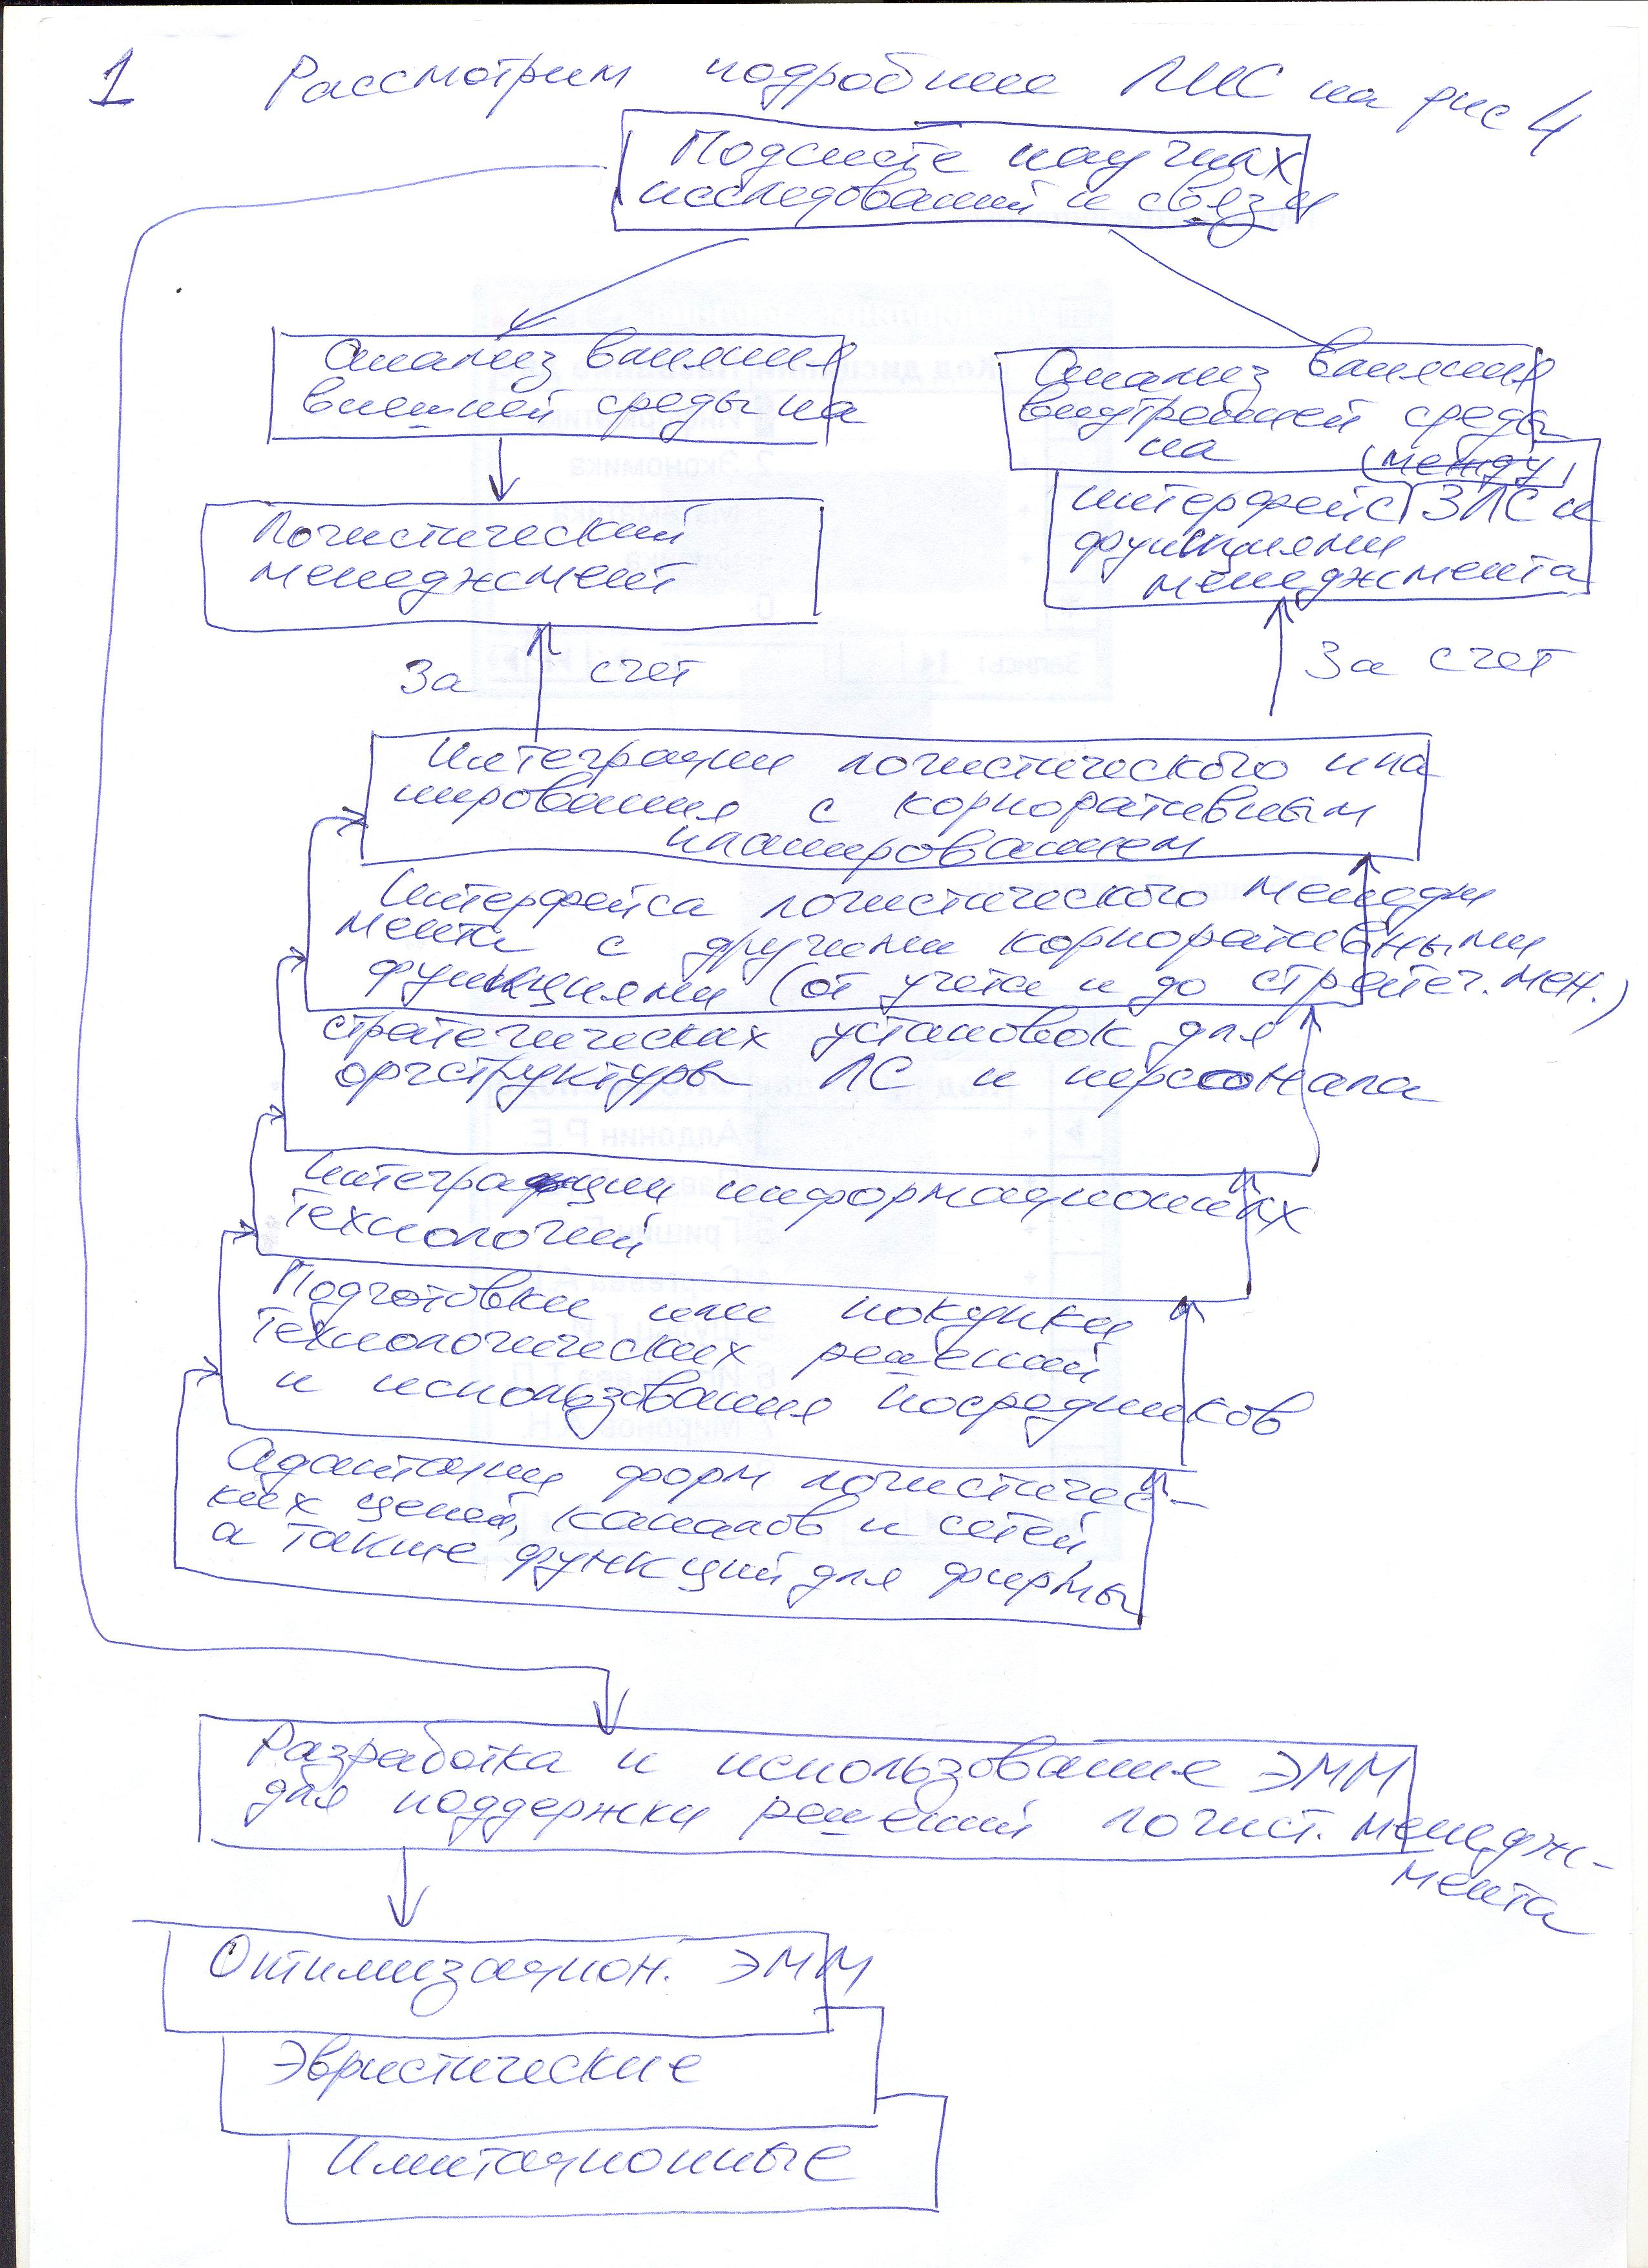 1 Рассмотрим подробнее ЛИС на рис 4
Подсисте научных
исследований и связи
Анализ влияния
внешней среды на
Анализ влияния
внутренней среды
на (между)
Логистический
менеджмент
интерфейс ЗЛС и
функциями
менеджмента
За счет
За счет
Интеграции логистического пла
нирования с корпоративным
планированием
Интерфейса логистического менедж
мента с другими корпоративными
функциями (от учета и до стратег. мен.)
стратегических установок для
оргструктуры ЛС и персонала
Интеграции информационных
технологий
Подготовки или покупки
технологических решений
и использования посредников
Адаптации форм логистичес-
ких цепей, каналов и сетей,
а также функций для фирмы
Разработка и использование ЭММ
для поддержки решений логист. менедж-
мента
Оптимизацион. ЭММ
Эвристические
Имитационные